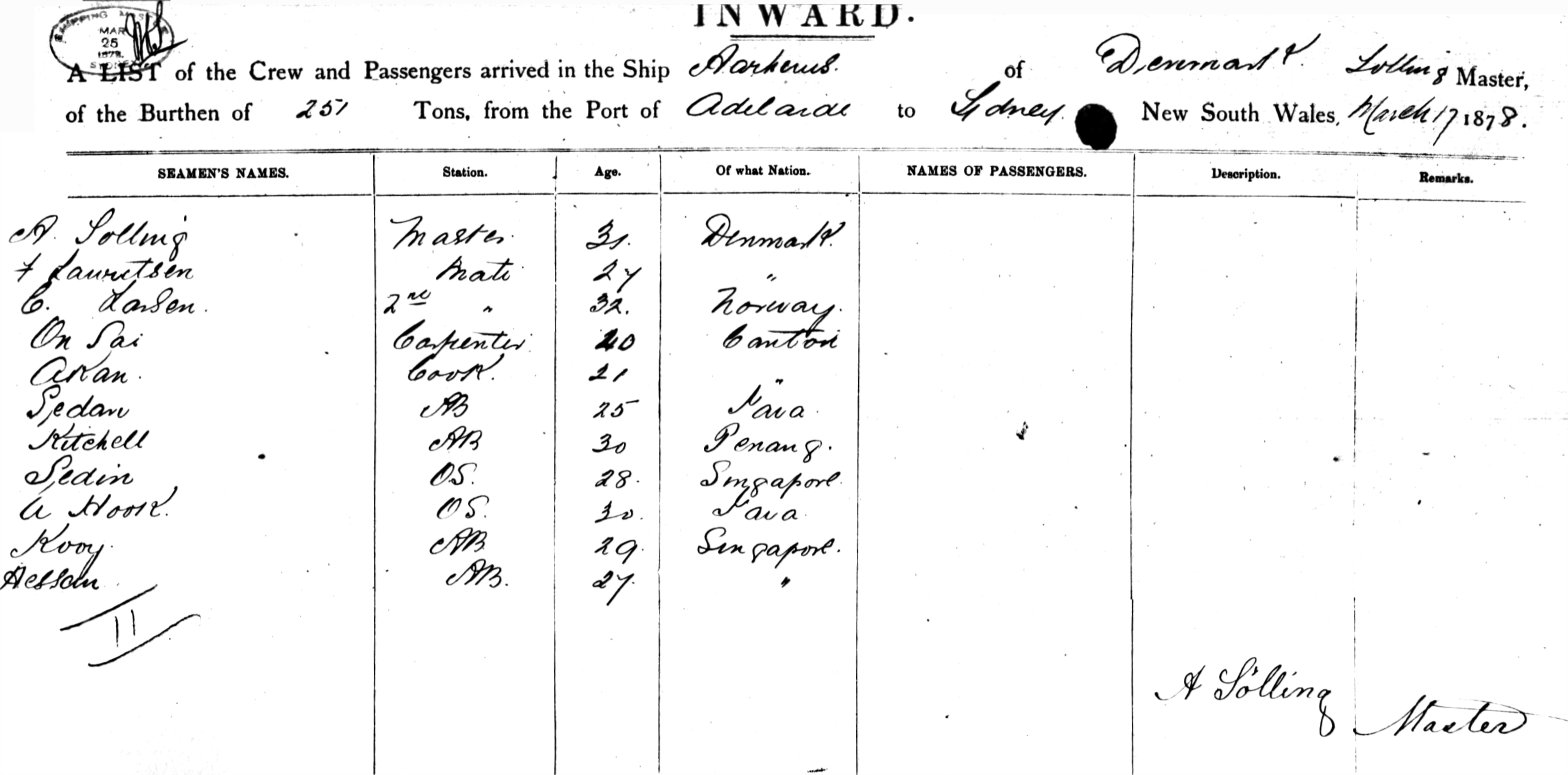 INWARD.
SHIPPING MASTER
MAR
25
1878
SYDNEY
A LIST of the Crew and Passengers arrived in the Ship Aarhuus. of Denmark. Solling Master,
of the Burthen of 251 Tons, from the Port of Adelaide to Sidney. New South Wales, March 17 1878.
SEAMEN'S NAMES. Station. Age. Of what Nation. NAMES OF PASSENGERS. Description. Remarks.
A. Solling Master. 31. Denmark.
F Lauritsen Mate 27 "
C. Larsen. 2nd " 32. Norway.
On Sai Carpenter 40 Canton
Akan. Cook. 21 "
Sedan AB 25 Java.
Kitchell AB 30 Penang.
Sedin OS. 28. Singapore.
A Hook. OS. 30. Java.
Kooy. AB 29. Singapore.
Hessan AB. 27. "
11
A Sölling
Master